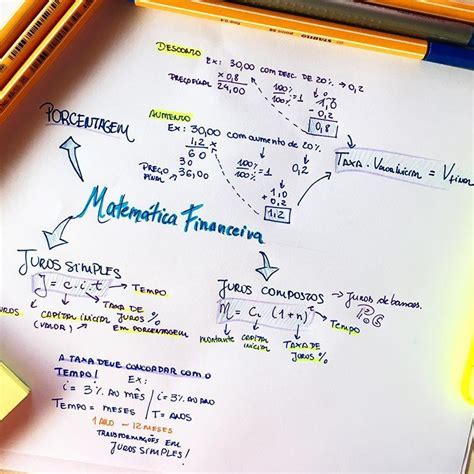 DESCONTO
Ex: 30,00 COM DESC. DE 20% → 0,2
x 0,8
PREÇO FINAL 24,00
100% = 1
100%
1,0
- 0,2
0,8
PORCENTAGEM
AUMENTO
Ex: 30,00 com aumento de 20%
1,2 x
60
30
PREÇO FINAL 36,00
100% = 1
100%
1,0
+ 0,2
1,2
TAXA . Valor Inicial = V final
Matemática Financeira
JUROS SIMPLES
J = c.i.t → TEMPO
CAPITAL INICIAL (VALOR)
TAXA DE JUROS % EM PORCENTAGEM
JUROS COMPOSTOS → Juros de bancos.
M = C. (1+n)
TEMPO
montante
CAPITAL INICIAL
TAXA DE JUROS %
A TAXA DEVE CONCORDAR COM O
TEMPO! Ex:
i = 3% AO MÊS / i = 3% AO ANO
TEMPO = MESES / T = ANOS
1 ANO - 12 MESES
TRANSFORMAÇÕES EM
JUROS SIMPLES!